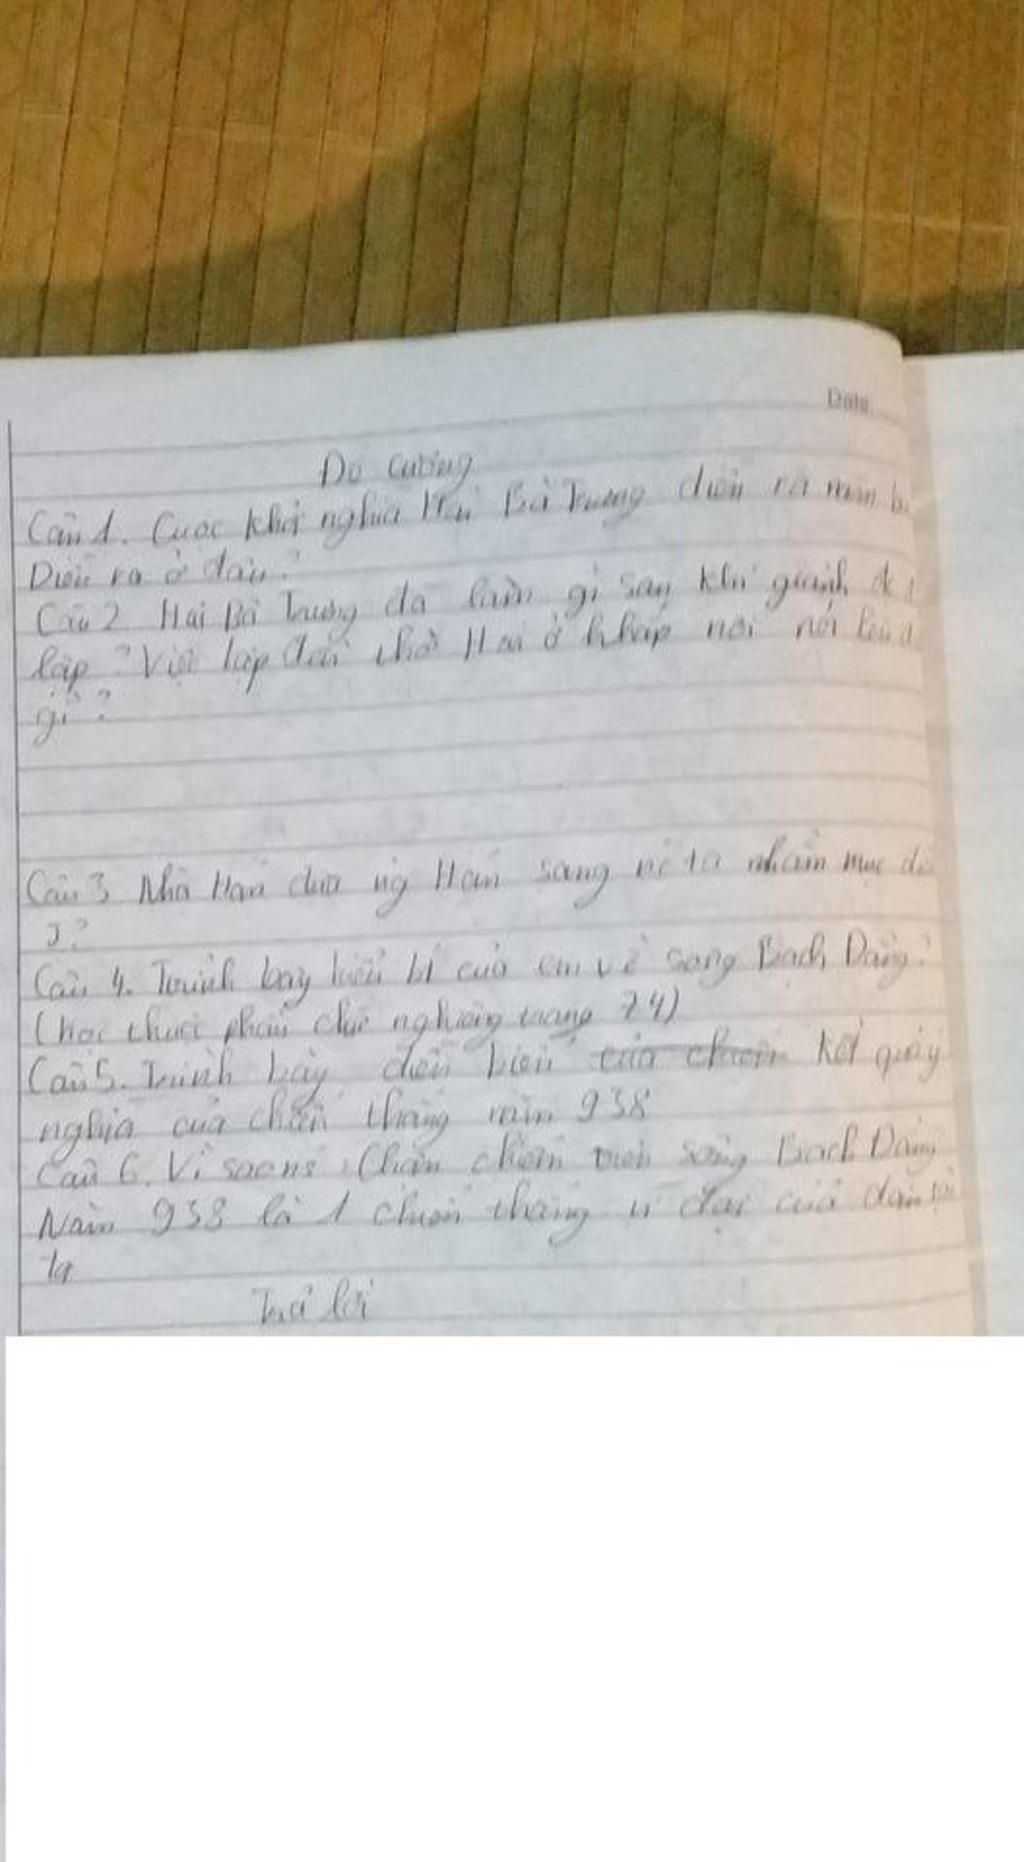 Date
Đề cương
Câu 1. Cuộc khởi nghĩa Hai Bà Trưng diễn ra năm
Diễn ra ở đâu?
Câu 2 Hai Bà Trưng đã làm gì sau khi giành
lập? Việc lập đền thờ Hai ở khắp nơi nói lên
gì?
Câu 3 Nhà Hán đưa ng Hán sang nc ta nhằm mục
J?
Câu 4. Trình bày hiểu bí của em về sông Bạch Đằng?
(học thuộc phần chữ nghiêng trang 74)
Câu 5. Trình bày diễn biến kết
nghĩa của chiến thắng năm 938
Câu 6. Vì sao nói: chiến trên sông Bạch Đằng
Năm 938 là 1 chiến thắng vĩ đại của dân
ta
Trả lời